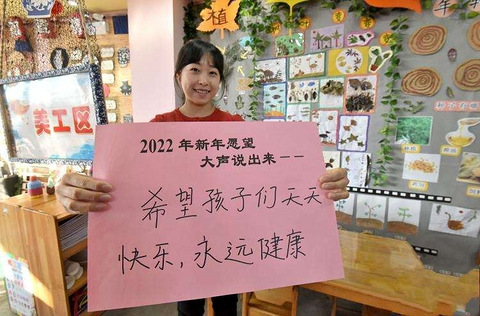 植
美工区
2022年新年愿望
大声说出来——
希望孩子们天天
快乐,永远健康